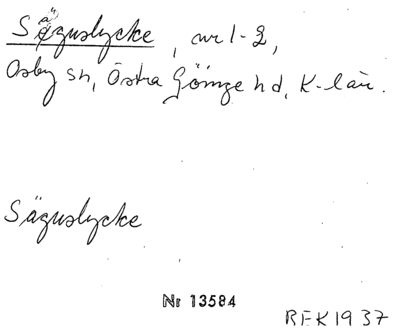 Säguslycke, nr 1-2,
Osby sn, Östra Göinge hd, K-län.
Säguslycke
Nr 13584
REK 1937